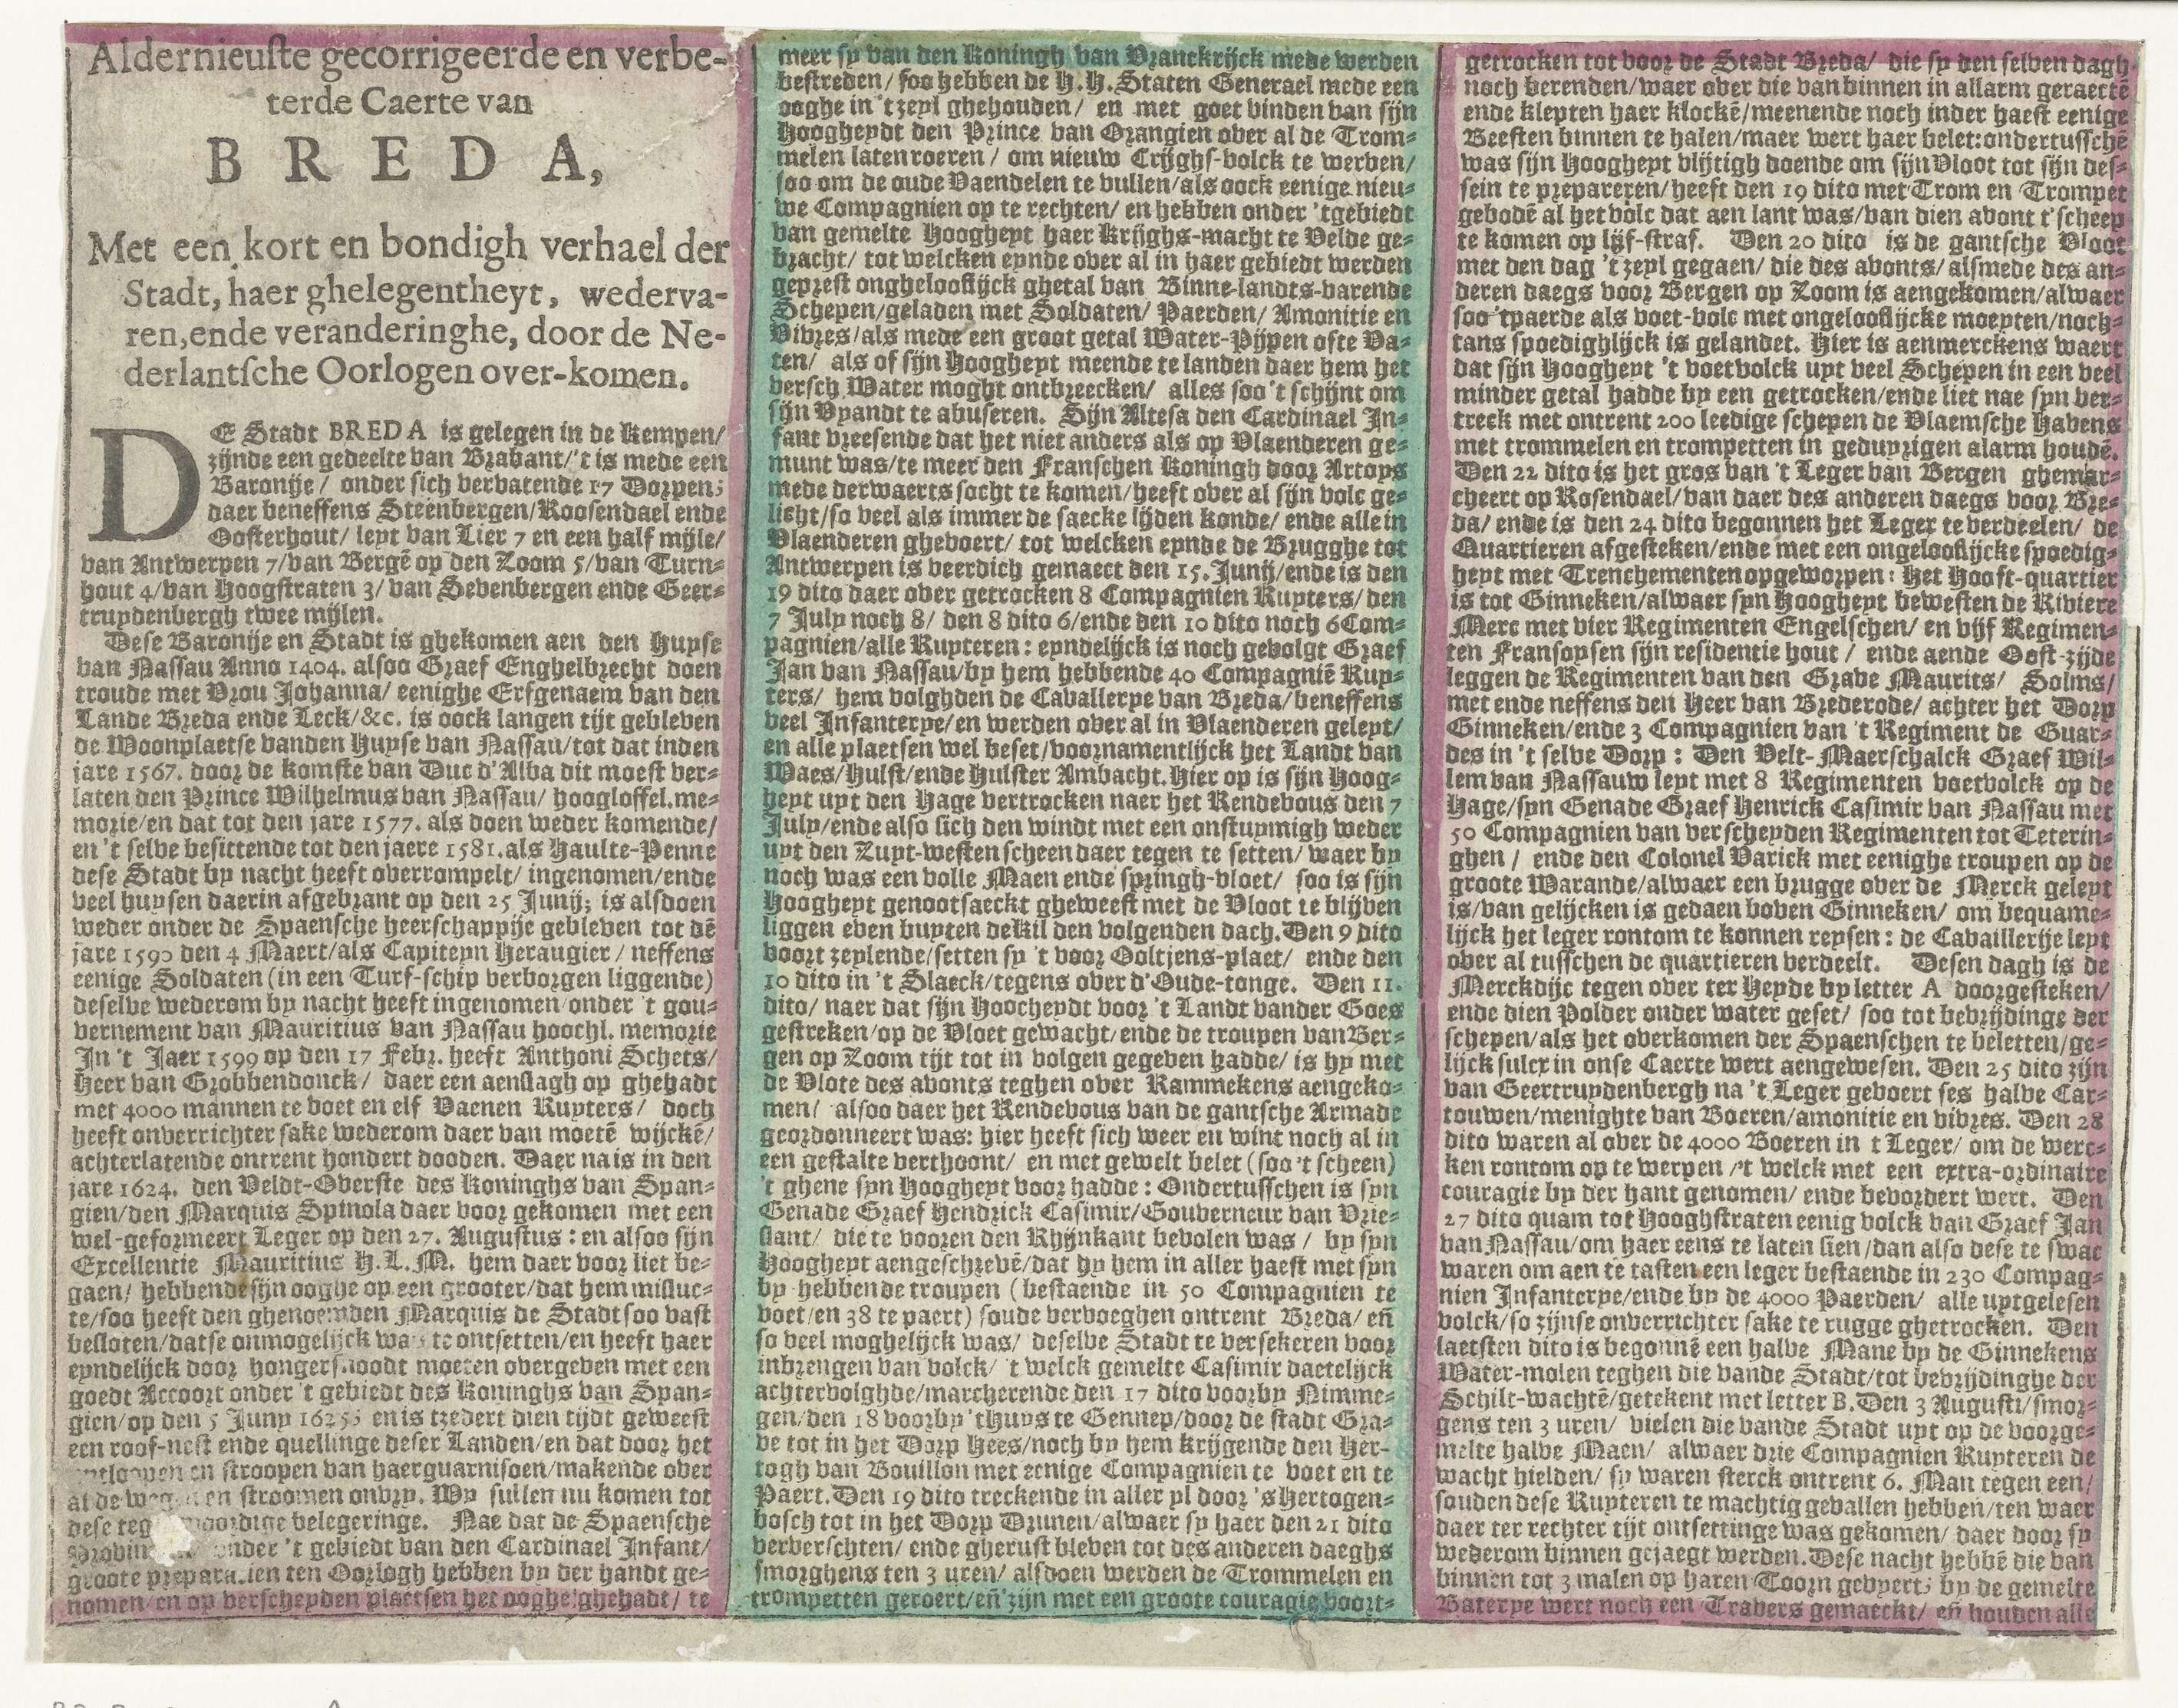 Aldernieuſte gecorrigeerde en verbe-
terde Caerte van
BREDA,
Met een kort en bondigh verhael der
Stadt, haer ghelegentheyt, wederva-
ren, ende veranderinghe, door de Ne-
derlantſche Oorlogen over-komen.
DE Stadt BREDA is gelegen in de Kempen/
zijnde een gedeelte van Brabant/'t is mede een
Baronije/ onder sich vervatende 17 Dorpen;
daer beneffens Steenbergen/Roosendael ende
Oosterhout/ leyt van Lier 7 en een half mijle/
van Antwerpen 7/van Bergē op den Zoom 5/van Turn-
hout 4/van Hoogstraten 3/ van Sevenbergen ende Geer-
truydenbergh twee mijlen.
Dese Baronije en Stadt is ghekomen aen den Huyse
van Nassau Anno 1404. alsoo Graef Enghelbrecht doen
troude met Vrou Johanna/ eenighe Erfgenaem van den
Lande Breda ende Leck/&c. is oock langen tijt gebleven
de Woonplaetse vanden Huyse van Nassau/tot dat inden
jare 1567. door de komste van Duc d'Alba dit moest ver-
laten den Prince Wilhelmus van Nassau/ hoogloffel. me-
morie/en dat tot den jare 1577. als doen weder komende/
en 't selve besittende tot den jaere 1581. als Haulte-Penne
dese Stadt by nacht heeft overrompelt/ ingenomen/ende
veel huysen daerin afgebrant op den 25 Junij; is alsdoen
weder onder de Spaensche heerschappije gebleven tot dē
jare 1590 den 4 Maert/als Capiteyn Heraugier/ neffens
eenige Soldaten (in een Turf-schip verborgen liggende)
deselve wederom by nacht heeft ingenomen onder 't gou-
vernement van Mauritius van Nassau hoochl. memorie
In 't Jaer 1599 op den 17 Febr. heeft Anthoni Schets/
Heer van Grobbendonck/ daer een aenslagh op ghehadt
met 4000 mannen te voet en elf Vaenen Ruyters/ doch
heeft onverrichter sake wederom daer van moetē wijckē/
achterlatende ontrent hondert dooden. Daer na is in den
jare 1624. den Veldt-Overste des Koninghs van Span-
gien/den Marquis Spinola daer voor gekomen met een
wel-geformeert Leger op den 27. Augustus: en alsoo sijn
Excellentie Mauritius H.L.M. hem daer voor liet be-
gaen/ hebbende sijn ooghe op een grooter/dat hem misluc-
te/soo heeft den ghenoemden Marquis de Stadt soo vast
besloten/datse onmogelijck was te ontsetten/en heeft haer
eyndelijck door hongers-noodt moeten overgeven met een
goedt Accoort onder 't gebiedt des Koninghs van Span-
gien/op den 5 Juny 1625; en is tzedert dien tijdt geweest
een roof-nest ende quellinge deser Landen/en dat door het
en stroopen van haer guarnisoen/makende over
al de en stroomen onvry. Wy sullen nu komen tot
dese belegeringe. Nae dat de Spaensche
onder 't gebiedt van den Cardinael Infant/
groote ten Oorlogh hebben by der handt ge-
nomen/en op verscheyden plaetsen het ooghe ghehadt/ te
meer sy van den Koningh van Vranckrijck mede werden
bestreden/ soo hebben de H.H. Staten Generael mede een
ooghe in 't zeyl ghehouden/ en met goet vinden van sijn
Hoogheydt den Prince van Orangien over al de Trom-
melen laten roeren/ om nieuw Crijghs-volck te werven/
soo om de oude Vaendelen te vullen/als oock eenige nieu-
we Compagnien op te rechten/ en hebben onder 'tgebiedt
van gemelte Hoogheyt haer Krijghs-macht te Velde ge-
bracht/ tot welcken eynde over al in haer gebiedt werden
geprest onghelooflijck ghetal van Binne-landts-varende
Schepen/geladen met Soldaten/ Paerden/ Amonitie en
Vivres/als mede een groot getal Water-Pijpen ofte Va-
ten/ als of sijn Hoogheyt meende te landen daer hem het
versch Water moght ontbreecken/ alles soo 't schijnt om
sijn Vyandt te abuseren. Sijn Altesa den Cardinael In-
fant vreesende dat het niet anders als op Vlaenderen ge-
munt was/te meer den Franschen Koningh door Artoys
mede derwaerts socht te komen/heeft over al sijn volc ge-
licht/so veel als immer de saecke lijden konde/ ende alle in
Vlaenderen ghevoert/ tot welcken eynde de Brugghe tot
Antwerpen is veerdich gemaect den 15. Junij/ende is den
19 dito daer over getrocken 8 Compagnien Ruyters/ den
7 July noch 8/ den 8 dito 6/ende den 10 dito noch 6 Com-
pagnien/alle Ruyteren: eyndelijck is noch gevolgt Graef
Jan van Nassau/by hem hebbende 40 Compagniē Ruy-
ters/ hem volghden de Cavallerye van Breda/beneffens
veel Infanterye/en werden over al in Vlaenderen geleyt/
en alle plaetsen wel beset/voornamentlijck het Landt van
Waes/Hulst/ende Hulster Ambacht. Hier op is sijn Hoog-
heyt uyt den Hage vertrocken naer het Rendevous den 7
July/ende also sich den windt met een onstuymigh weder
uyt den Zuyt-westen scheen daer tegen te setten/ waer by
noch was een volle Maen ende springh-vloet/ soo is sijn
Hoogheyt genootsaeckt gheweest met de Vloot te blijven
liggen even buyten de Kil den volgenden dach. Den 9 dito
voort zeylende/setten sy 't voor Ooltjens-plaet/ ende den
10 dito in 't Slaeck/tegens over d'Oude-tonge. Den 11.
dito/ naer dat sijn Hoocheydt voor 't Landt vander Goes
gestreken/op de Vloet gewacht/ende de troupen van Ber-
gen op Zoom tijt tot in volgen gegeven hadde/ is hy met
de Vlote des avonts teghen over Rammekens aengeko-
men/ alsoo daer het Rendevous van de gantsche Armade
geordonneert was: hier heeft sich weer en wint noch al in
een gestalte verthoont/ en met gewelt belet (soo 't scheen)
't ghene syn Hoogheyt voor hadde: Ondertusschen is syn
Genade Graef Hendrick Casimir/Gouverneur van Vrie-
slant/ die te vooren den Rhijnkant bevolen was/ by syn
Hoogheyt aengeschrevē/dat hy hem in aller haest met syn
by hebbende troupen (bestaende in 50 Compagnien te
voet/en 38 te paert) soude vervoeghen ontrent Breda/ eñ
so veel moghelijck was/ deselve Stadt te versekeren voor
inbrengen van volck/ 't welck gemelte Casimir daetelijck
achtervolghde/marcherende den 17 dito voorby Nimme-
gen/den 18 voorby 't Huys te Gennep/door de stadt Gra-
ve tot in het Dorp Hees/noch by hem krijgende den Her-
togh van Bouillon met eenige Compagnien te voet en te
Paert. Den 19 dito treckende in aller yl door 's Hertogen-
bosch tot in het Dorp Drunen/alwaer sy haer den 21 dito
ververschten/ ende gherust bleven tot des anderen daeghs
smorghens ten 3 uren/ alsdoen werden de Trommelen en
trompetten geroert/eñ zijn met een groote couragie voort-
getrocken tot voor de Stadt Breda/ die sy den selven dagh
noch berenden/waer over die van binnen in allarm geraectē
ende klepten haer klockē/meenende noch inder haest eenige
Beesten binnen te halen/maer wert haer belet: ondertusschē
was sijn Hoogheyt vlijtigh doende om sijn Vloot tot sijn des-
sein te prepareren/heeft den 19 dito met Trom en Trompet
gebodē al het volc dat aen lant was/van dien avont t'scheep
te komen op lijf-straf. Den 20 dito is de gantsche Vloot
met den dag 't zeyl gegaen/ die des avonts/ alsmede des an-
deren daegs voor Bergen op Zoom is aengekomen/alwaer
soo 'tpaerde als voet-volc met ongelooflijcke moeyten/noch-
tans spoedighlijck is gelandet. Hier is aenmerckens waert
dat sijn Hoogheyt 't voetvolck uyt veel Schepen in een veel
minder getal hadde by een getrocken/ende liet nae syn ver-
treck met ontrent 200 leedige schepen de Vlaemsche Havens
met trommelen en trompetten in geduyrigen alarm houdē.
Den 22 dito is het gros van 't Leger van Bergen ghemar-
cheert op Rosendael/van daer des anderen daegs voor Bre-
da/ ende is den 24 dito begonnen het Leger te verdeelen/ de
Quartieren afgesteken/ende met een ongelooflijcke spoedig-
heyt met Trenchementen opgeworpen: Het Hooft-quartier
is tot Ginneken/alwaer syn Hoogheyt bewesten de Riviere
Merc met vier Regimenten Engelschen/ en vijf Regimen-
ten Fransoysen sijn residentie hout/ ende aende Oost-zijde
leggen de Regimenten van den Grave Maurits/ Solms/
met ende neffens den Heer van Brederode/ achter het Dorp
Ginneken/ende 3 Compagnien van 't Regiment de Guar-
des in 't selve Dorp: Den Velt-Maerschalck Graef Wil-
lem van Nassauw leyt met 8 Regimenten voetvolck op de
Hage/syn Genade Graef Henrick Casimir van Nassau met
50 Compagnien van verscheyden Regimenten tot Teterin-
ghen/ ende den Colonel Varick met eenighe troupen op de
groote Warande/alwaer een brugge over de Merck geleyt
is/van gelijcken is gedaen boven Ginneken/ om bequame-
lijck het leger rontom te konnen reysen: de Cavaillerije leyt
over al tusschen de quartieren verdeelt. Desen dagh is de
Merckdijc tegen over ter Heyde by letter A doorgesteken/
ende dien Polder onder water geset/ soo tot bevrijdinge der
schepen/als het overkomen der Spaenschen te beletten/ge-
lijck sulcx in onse Caerte wert aengewesen. Den 25 dito zijn
van Geertruydenbergh na 't Leger gevoert ses halve Car-
touwen/menighte van Boeren/amonitie en vivres. Den 28
dito waren al over de 4000 Boeren in t Leger/ om de werc-
ken rontom op te werpen/'t welck met een extra-ordinaire
couragie by der hant genomen/ ende bevordert wert. Den
27 dito quam tot Hooghstraten eenig volck van Graef Jan
van Nassau/om haer eens te laten sien/dan also dese te swac
waren om aen te tasten een leger bestaende in 230 Compag-
nien Infanterye/ende by de 4000 Paerden/ alle uytgelesen
volck/so zijnse onverrichter sake te rugge ghetrocken. Den
laetsten dito is begonnē een halve Mane by de Ginnekens
Water-molen teghen die vande Stadt/tot bevrijdinghe der
Schilt-wachtē/getekent met letter B. Den 3 Augusti/smor-
gens ten 3 uren/ vielen die vande Stadt uyt op de voorge-
melte halve Maen/ alwaer drie Compagnien Ruyteren de
wacht hielden/ sy waren sterck ontrent 6. Man tegen een/
souden dese Ruyteren te machtig gevallen hebben/ten waer
daer ter rechter tijt ontsettinge was gekomen/ daer door sy
wederom binnen gejaegt werden. Dese nacht hebbē die van
binnen tot 3 malen op haren Toorn gevyert; by de gemelte
Baterye wert noch een Travers gemaeckt/ eñ houden alle